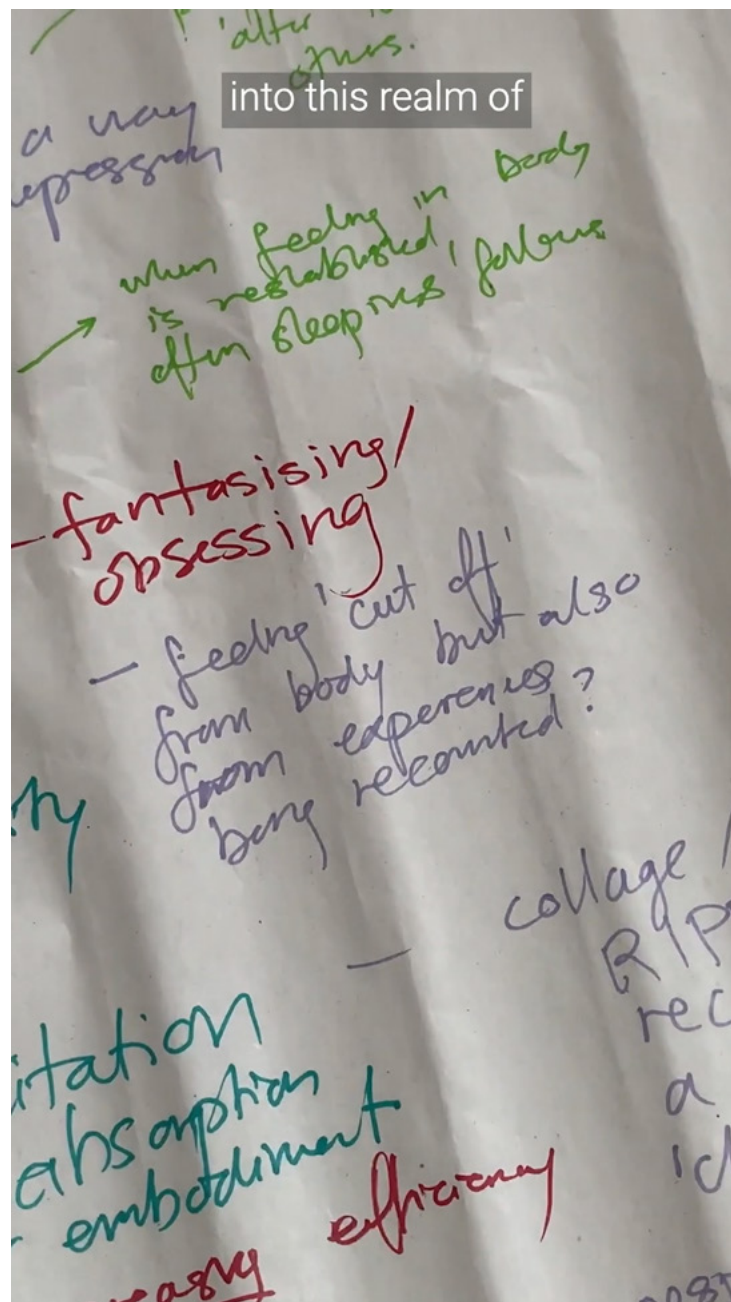 'alter
others.
into this realm of
a way
when feeling in body
is reestablished,
often sleepiness follows
- fantasising/
obsessing
- feeling 'cut off'
from body but also
from experiences
being recounted?
- collage /
RIP
rec
a
itation
absorption
- embodiment
efficiency